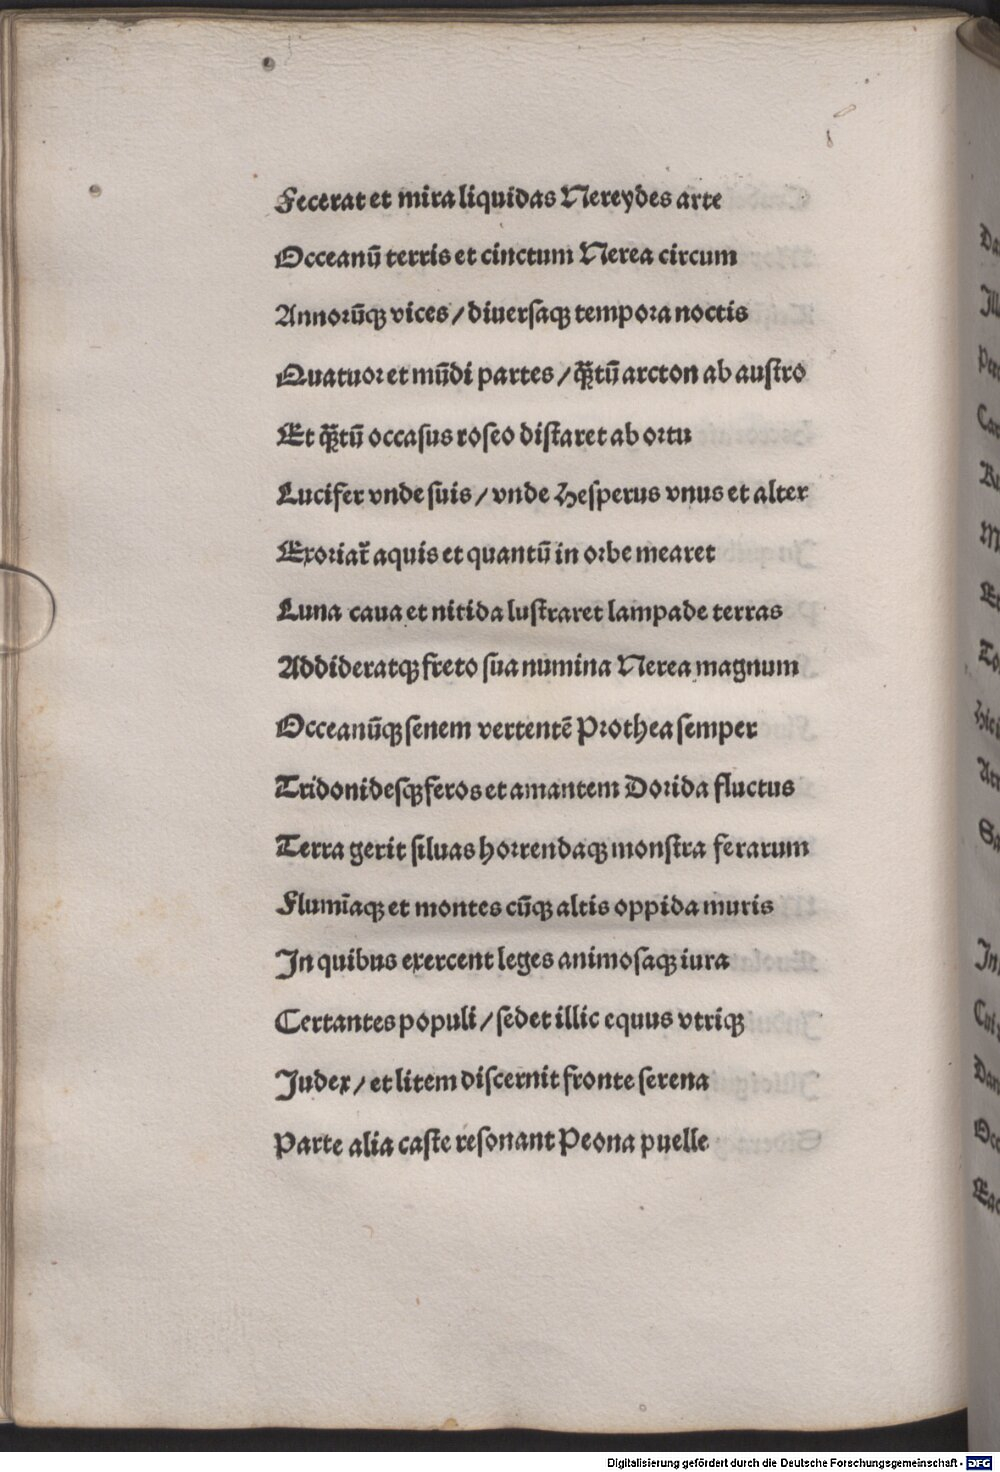 Fecerat et mira liquidas Nereydes arte
Occeanū terris et cinctum Nerea circum
Annorūqꝫ vices / diuersaqꝫ tempora noctis
Quatuor et mūdi partes / q̄̃tū arcton ab austro
Et q̄̃tū occasus roseo distaret ab ortu
Lucifer vnde suis / vnde Hesperus vnus et alter
Exoriat̃ aquis et quantū in orbe mearet
Luna caua et nitida lustraret lampade terras
Addideratqꝫ freto sua numina Nerea magnum
Occeanūqꝫ senem vertentē Prothea semper
Tridonidesqꝫ feros et amantem Dorida fluctus
Terra gerit siluas horrendaqꝫ monstra ferarum
Flumīaqꝫ et montes cūqꝫ altis oppida muris
In quibus exercent leges animosaqꝫ iura
Certantes populi / sedet illic equus vtriqꝫ
Judex / et litem discernit fronte serena
Parte alia caste resonant Peona puelle
Digitalisierung gefördert durch die Deutsche Forschungsgemeinschaft - DFG